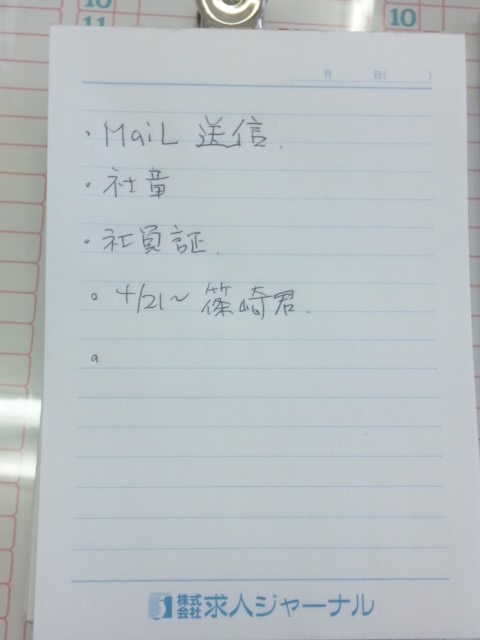 10
11
10
月 日( )
・MaiL 送信.
・社章
・社員証.
・4/21~ 篠崎君.
・
株式会社 求人ジャーナル